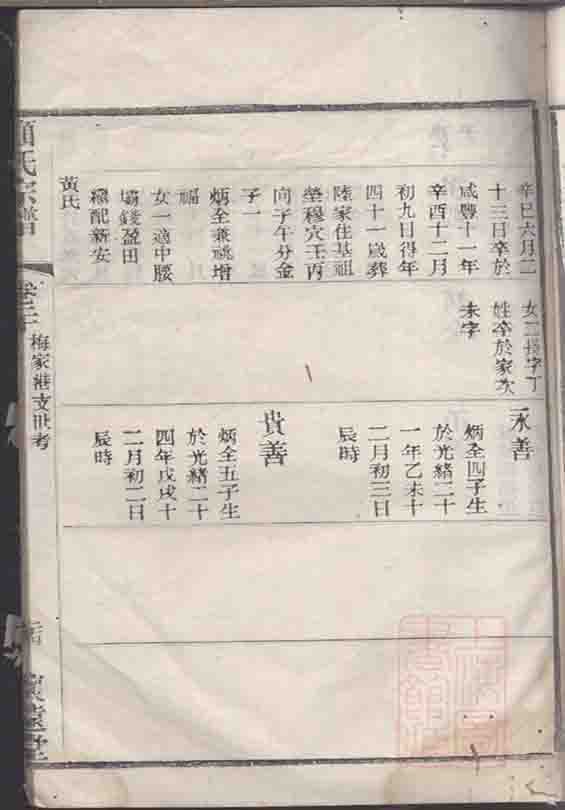 辛巳六月二
十三日卒於
咸豐十一年
辛酉十二月
初九日得年
四十一歲葬
陸家住基祖
塋穆穴壬丙
向子午分金
子一
炳全兼祧增
福
女一適中腰
壩錢盈田
繼配新安
黃氏
女二長字丁
姓卒於家次
未字
永善
炳全四子生
於光緒二十
一年乙未十
二月初三日
辰時
貴善
炳全五子生
於光緒二十
四年戊戌十
二月初二日
辰時
顧氏宗譜
卷二十
梅家港支世考